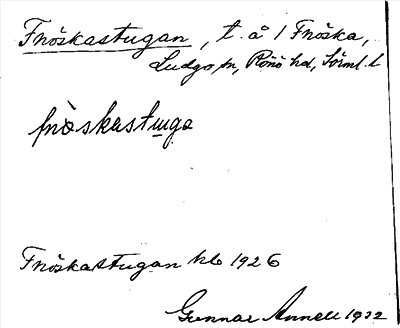 Fnöskastugan, t. å 1 Fnöska,
Ludgo sn, Rönö hd, Sörml. l
fnö̀skastuga
Fnöskastugan hb 1926
Gunnar Annell 1932